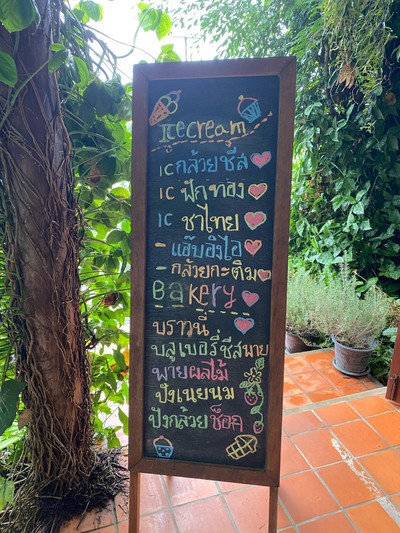 Icecream
IC กล้วยชีส
IC ฟักทอง
IC ชาไทย
- แอ๊บองไอ
- กล้วยกะติม
Bakery
บราวนี่
บลูเบอรี่ชีสพาย
พายผลไม้
ปังเนยนม
ปังกล้วยช็อก